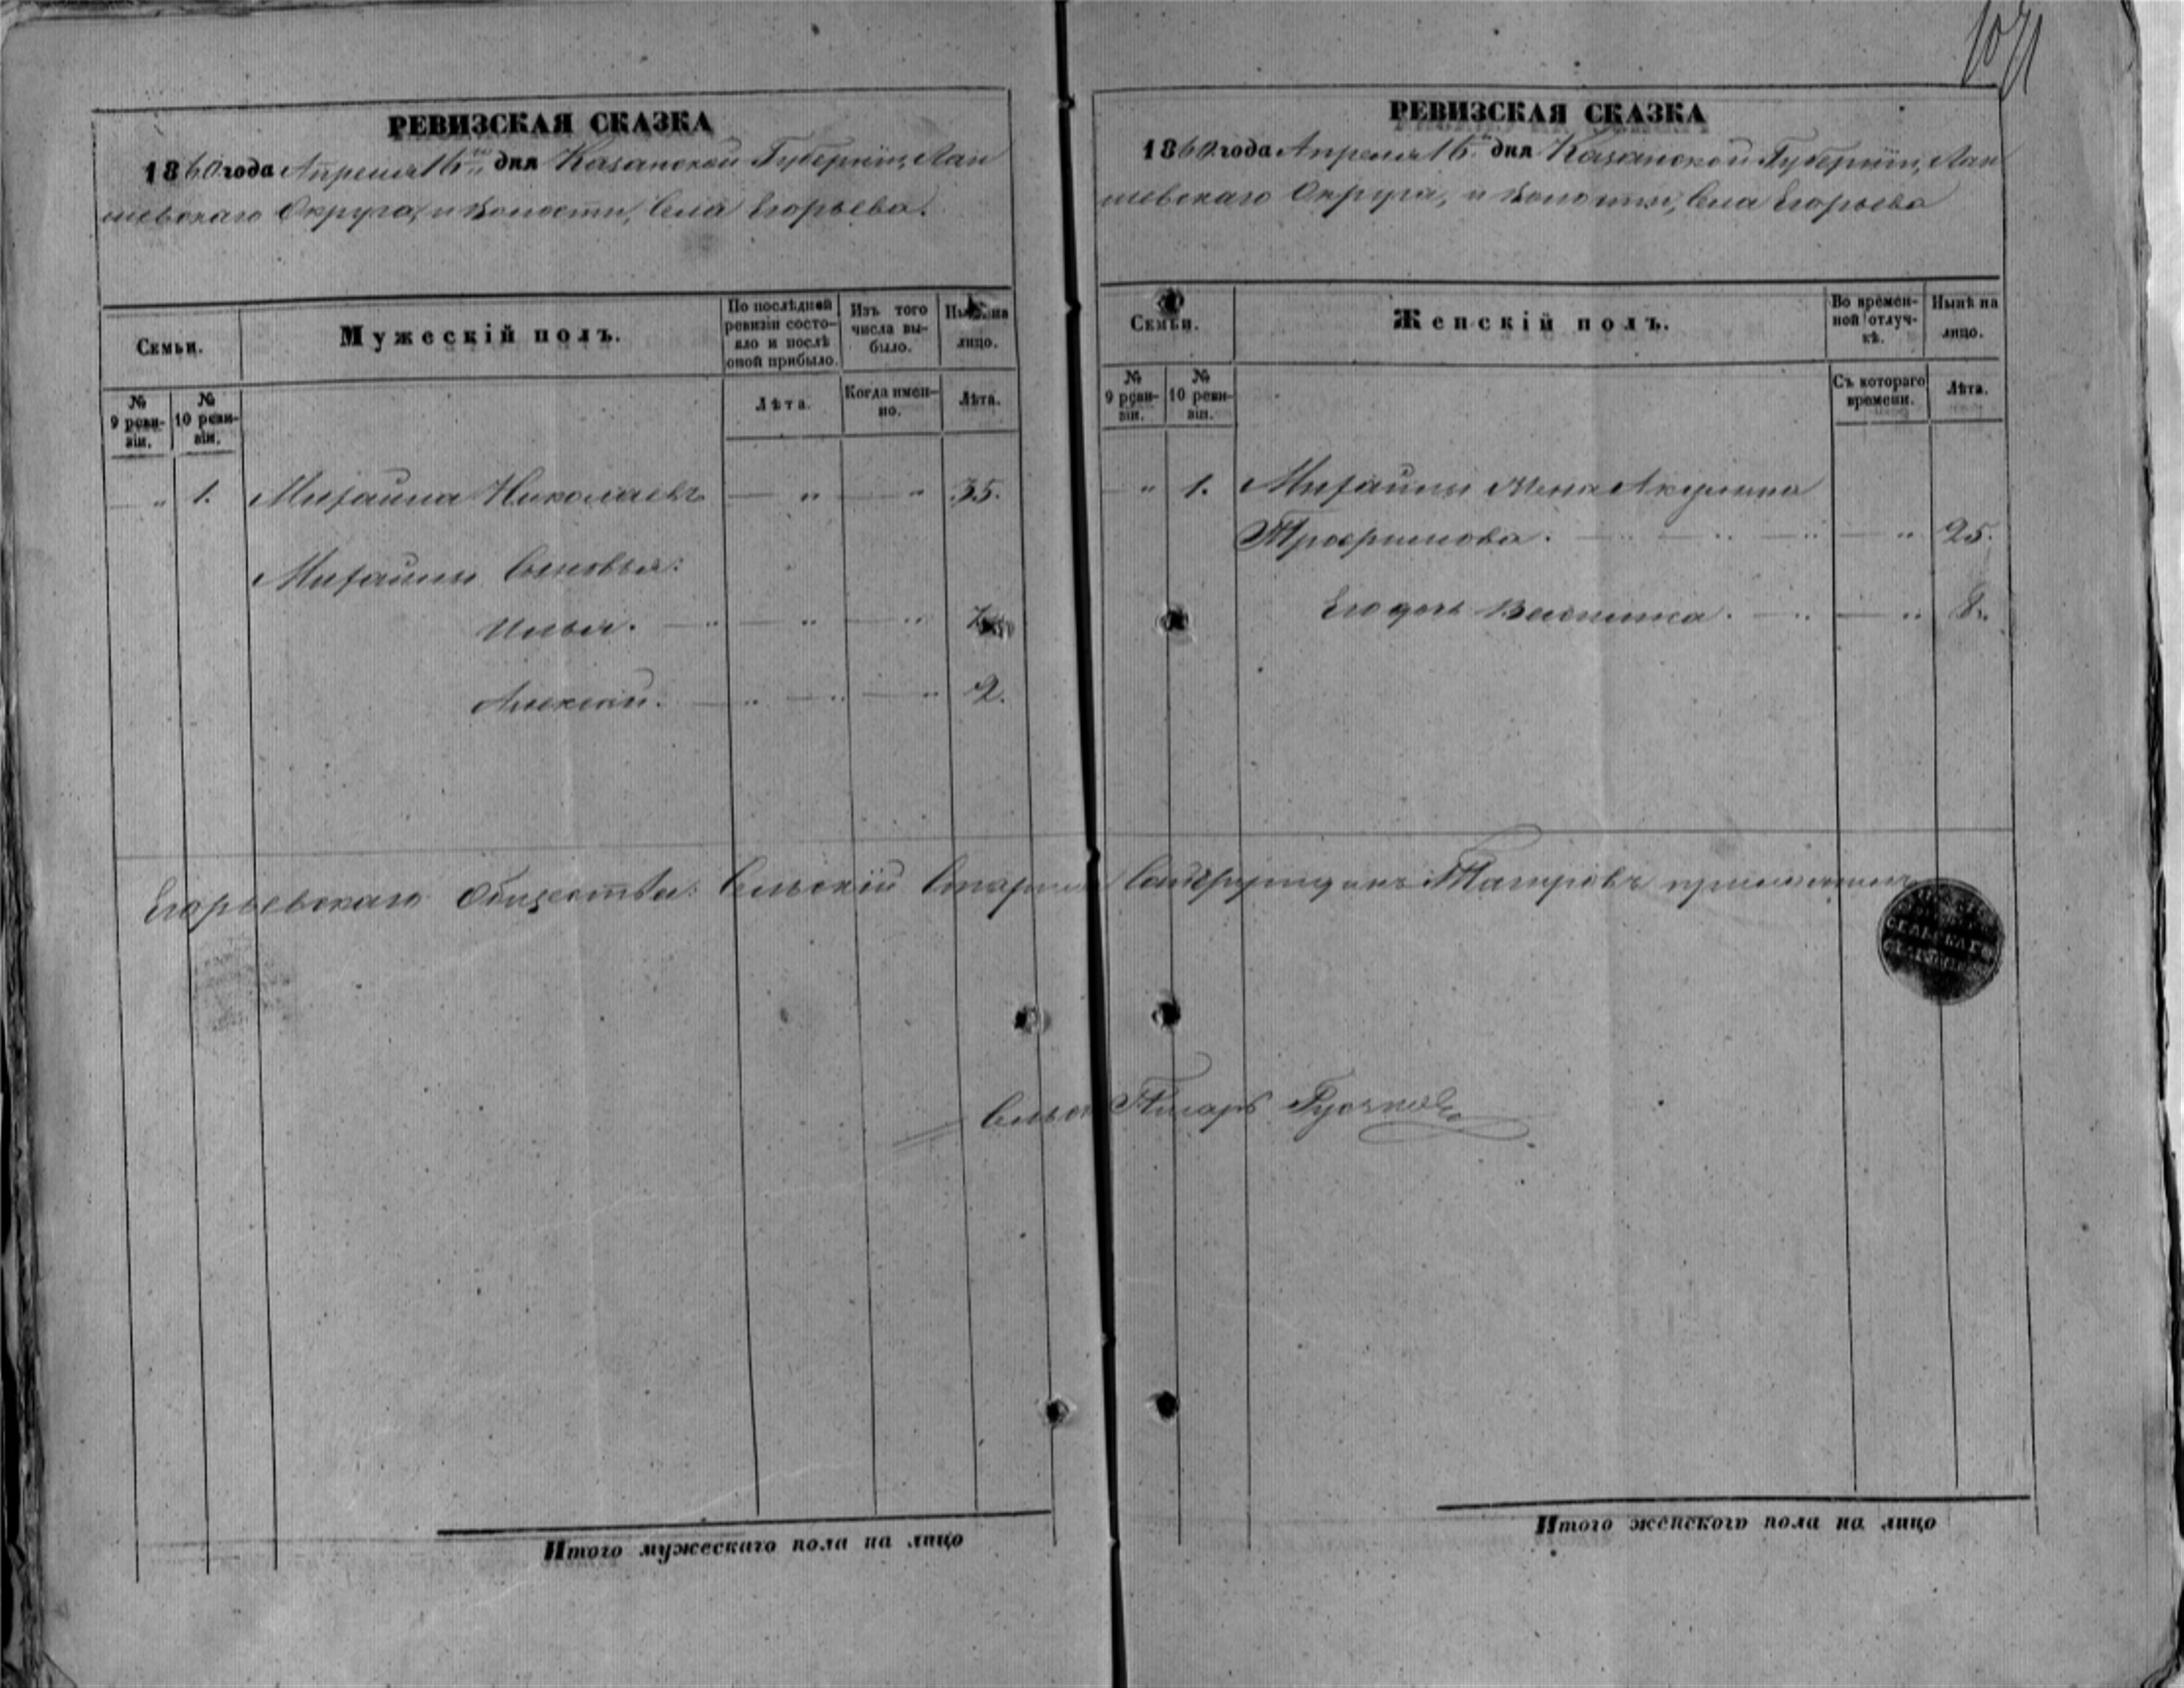 РЕВИЗСКАЯ СКАЗКА
1860 года Апреля 16 дня Казанской Губерніи, Лаи
шевскаго Округа, и Волости, Села Егорьева.
Семьи.
Мужескій полъ.
По послѣдней ревизіи состояло и послѣ оной прибыло.
Изъ того числа выбыло.
Нынѣ на лицо.
№ 9 ревизіи.
№ 10 ревизіи.
Лѣта.
Когда именно.
Лѣта.
„ 1. Михайла Николаевъ — „ — „ 35.
Михайлы Сыновья:
Илья. — „ — „ — „ 7
Алексѣй. — „ — „ — „ 2.
РЕВИЗСКАЯ СКАЗКА
1860 года Апреля 16 дня Казанской Губерніи, Лаи
шевскаго Округа, и Волости, Села Егорьева
Семьи.
Женскій полъ.
Во временной отлучкѣ.
Нынѣ на лицо.
№ 9 ревизіи.
№ 10 ревизіи.
Съ котораго времени.
Лѣта.
„ 1. Михайлы Жена Акулина
Трофимова. — „ — „ — „ — „ 25.
Его дочь Василиса. — „ — „ 8.
Егорьевскаго Общества: Сельскій Старшина Таировъ
Сельск Писарь
Итого мужескаго пола на лицо
Итого женского пола на лицо
СЕЛЬСКАГО